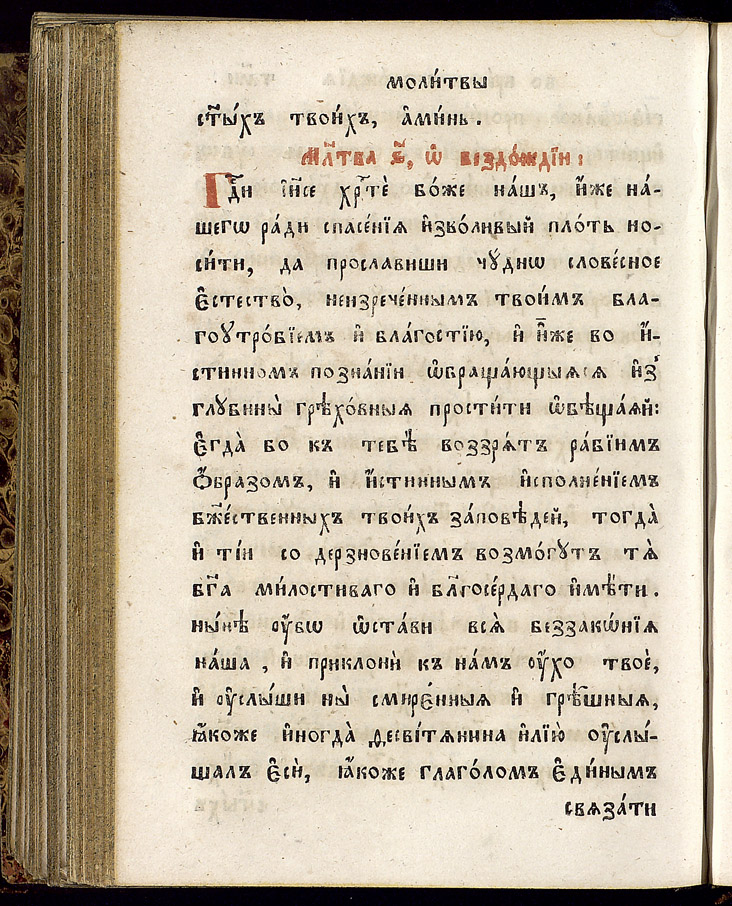 моли́твы
ст҃ы́хъ твои́хъ, а҆ми́нь.
Мл҃тва є҃, ѡ҆ бездо́ждїи:
Гд҇и і҆и҃се хрⷭ҇тѐ бо́же на́шъ, и҆́же на́-
шегѡ ра́ди спасе́нїѧ и҆зво́ливый пло́ть но-
си́ти, да прославиши чꙋ́днѡ слове́сное
є҆стество̀, неизрече́ннымъ твои́мъ бла-
гоꙋтро́бїемъ и҆ бла́гостїю, и҆ и҆̀же во и҆́-
стинномъ позна́нїи ѡ҆браща́ющыѧсѧ и҆з̾
глꙋбины̀ грѣхо́вныѧ прости́ти ѡ҆бѣща́ѧй:
є҆гда̀ бо къ тебѣ̀ воззрѧ́тъ ра́бїимъ
ѻ҆́бразомъ, и҆ и҆́стиннымъ и҆сполне́нїемъ
бж҃е́ственныхъ твои́хъ за́повѣдей, тогда̀
и҆ ті́и со дерзнове́нїемъ возмо́гꙋтъ тѧ̀
бг҃а ми́лостиваго и҆ бл҃госе́рдаго и҆мѣ́ти.
ны́нѣ ᲂу҆́бѡ ѡ҆ста́ви всѧ̀ беззакѡ́нїѧ
на́ша, и҆ приклонѝ къ на́мъ ᲂу҆́хо твоѐ,
и҆ ᲂу҆слы́ши ны̀ смире́нныѧ и҆ грѣ́шныѧ,
ꙗ҆́коже и҆ногда̀ ѳесві́тѧнина и҆лїю̀ ᲂу҆слы́-
шалъ є҆сѝ, ꙗ҆́коже глаго́ломъ є҆ди́нымъ
свѧза́ти